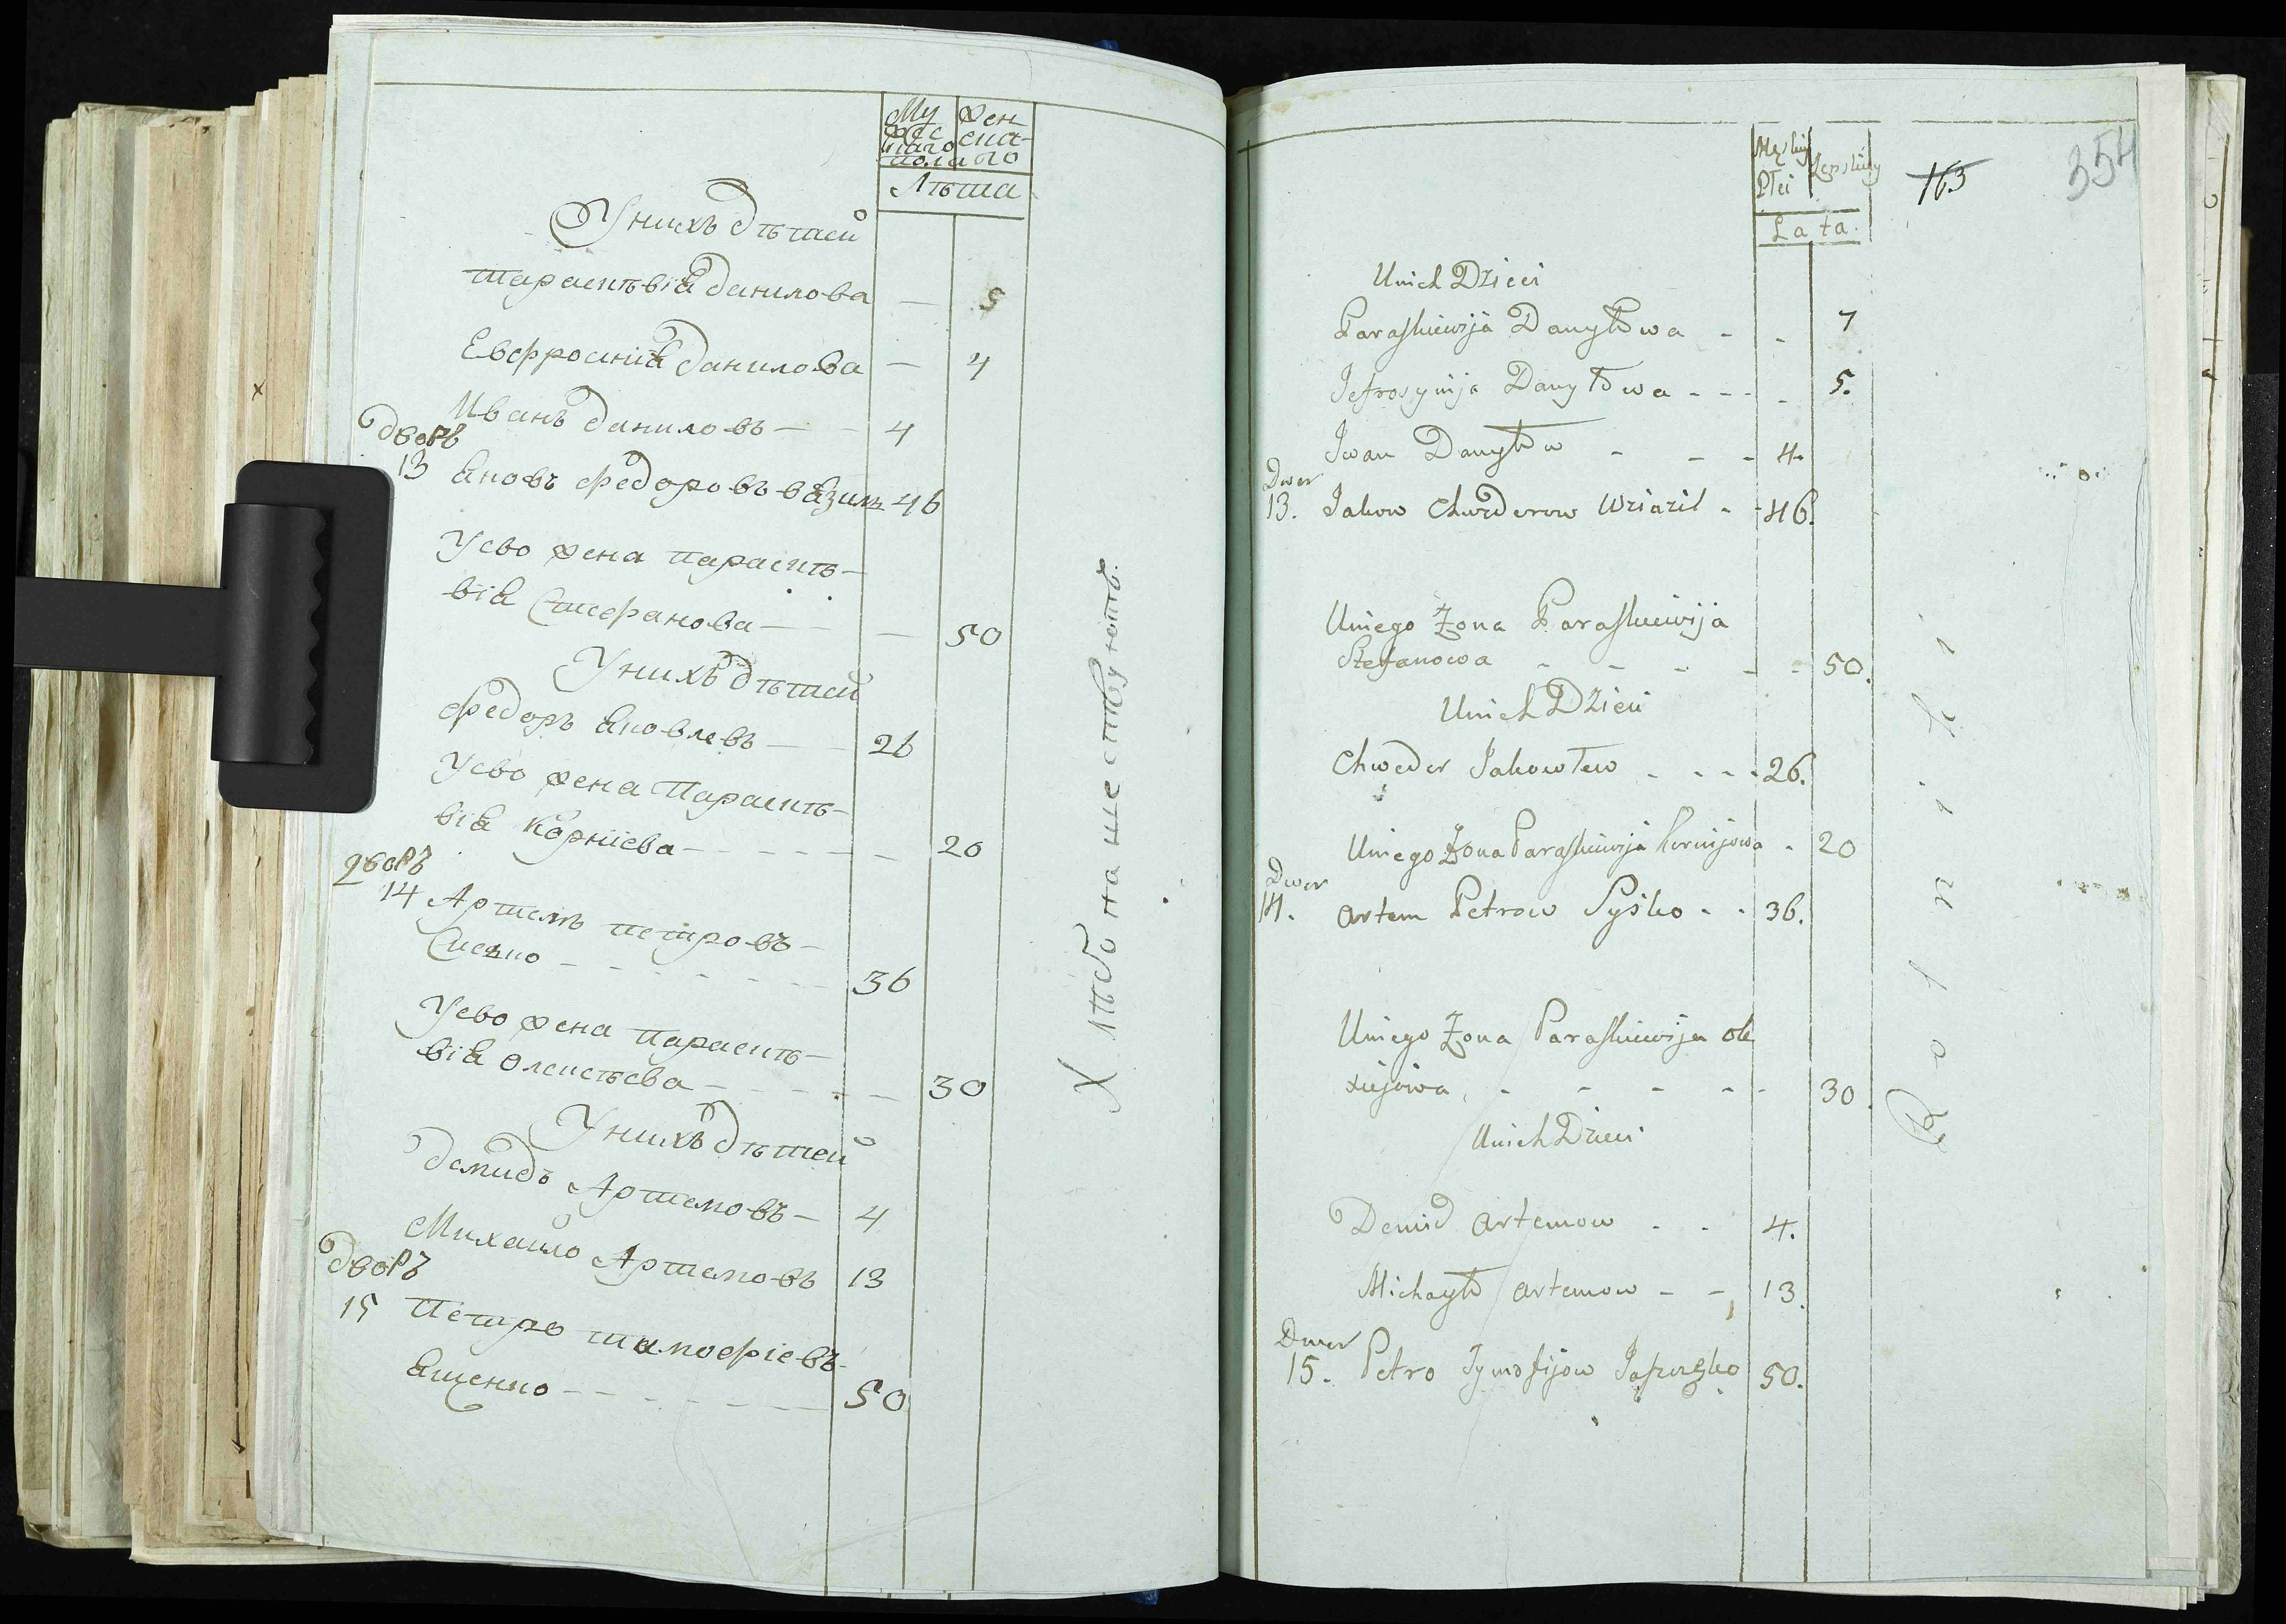 Му
жес
каго
пола
Жен
ска-
го
Лѣта
У нихъ дѣтей
Параскѣвія Данилова — 5
Евфросиніа Данилова — 4
Иванъ Даниловъ — 4
дворъ
13 Яковъ Федоровъ Вязил 46
У ево жена Параскѣ-
віа Стефанова — 50
У нихъ дѣтей
Федоръ Яковлевъ — 26
У ево жена Параскѣ-
віа Корніева — 20
дворъ
14 Артемъ Петровъ —
36
У ево жена Параскѣ-
віа Олексѣева — 30
У нихъ дѣтей
Демидъ Артемовъ — 4
Михаило Артемовъ 13
дворъ
15 Петро Тимофіевъ
Ященко — 50
Хлѣбопашествуютъ.
Męskiy Płei
Zenskiey
Lata.
163
354
Unich Dzieci
Paraskiewija Danyłowa - - 7
Jefrosynija Danyłowa - - - - 5.
Iwan Danyłow - - - 4.
Dwor
13. Jakow Chwederow Wriazil - - 46.
Uniego Żona Paraskiewija
Stefanowa - - - - - 50.
Unich Dzieci
Chweder Jakowlew - - - - 26.
Uniego Żona Paraskiewija Kornijowa - 20
Dwor
14. Artem Petrow Syśko - - 36.
Uniego Żona Paraskiewija Ole
xiejowa - - - - - 30.
Unich Dzieci
Demid Artemow - - 4.
Michayło Artemow - - 13.
Dwor
15. Petro Tymofijow 50.
Rolnicy